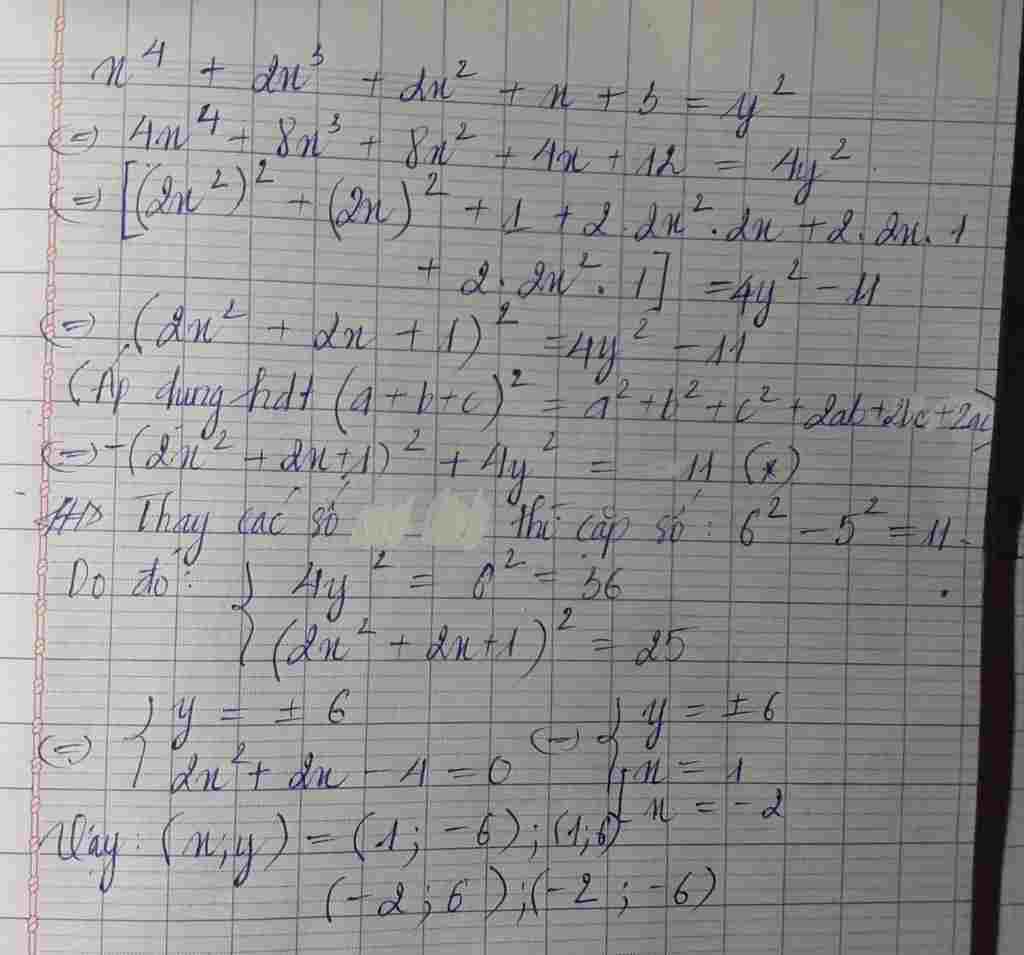 x⁴ + 2x³ + 2x² + x + 3 = y²
(=) 4x⁴ + 8x³ + 8x² + 4x + 12 = 4y².
(=) [(2x²)² + (2x)² + 1 + 2.2x².2x + 2.2x.1
+ 2.2x².1] = 4y² - 11
(=) (2x² + 2x + 1)² = 4y² - 11
(Áp dụng hdt (a+b+c)² = a²+b²+c²+2ab+2bc+2ac)
(=) -(2x² + 2x+1)² + 4y² = 11 (*)
Thay các số thì cặp số: 6² - 5² = 11.
Do đó: { 4y² = 6² = 36
(2x² + 2x+1)² = 25
(=) { y = ± 6 (=) { y = ±6
2x² + 2x - 4 = 0 [ x = 1
x = -2
Vậy: (x;y) = (1; -6); (1;6)
(-2; 6); (-2; -6)